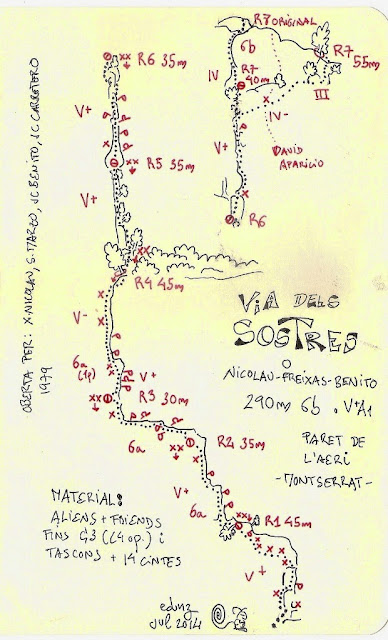 R7 ORIGINAL
6b
IV
R7
40m
R7
55m
III
IV-
V+
DAVID
APARICIO
R6
R6 35m
V+
R5 35m
V+
R4 45m
V-
6a
(1p)
V+
R3 30m
6a
R2 35m
V+
6a
R1 45m
V+
OBERTA PER: X.NICOLAU, JC BENITO,
1979
VIA DELS
SOSTRES
O
NICOLAU-FREIXAS-BENITO
290m 6b o V+A1
PARET DE
L'AERI
-MONTSERRAT-
MATERIAL:
ALIENS + FRIENDS
FINS G3 (C4 op.) i
TASCONS + 14 CINTES
eduz
jul 2014